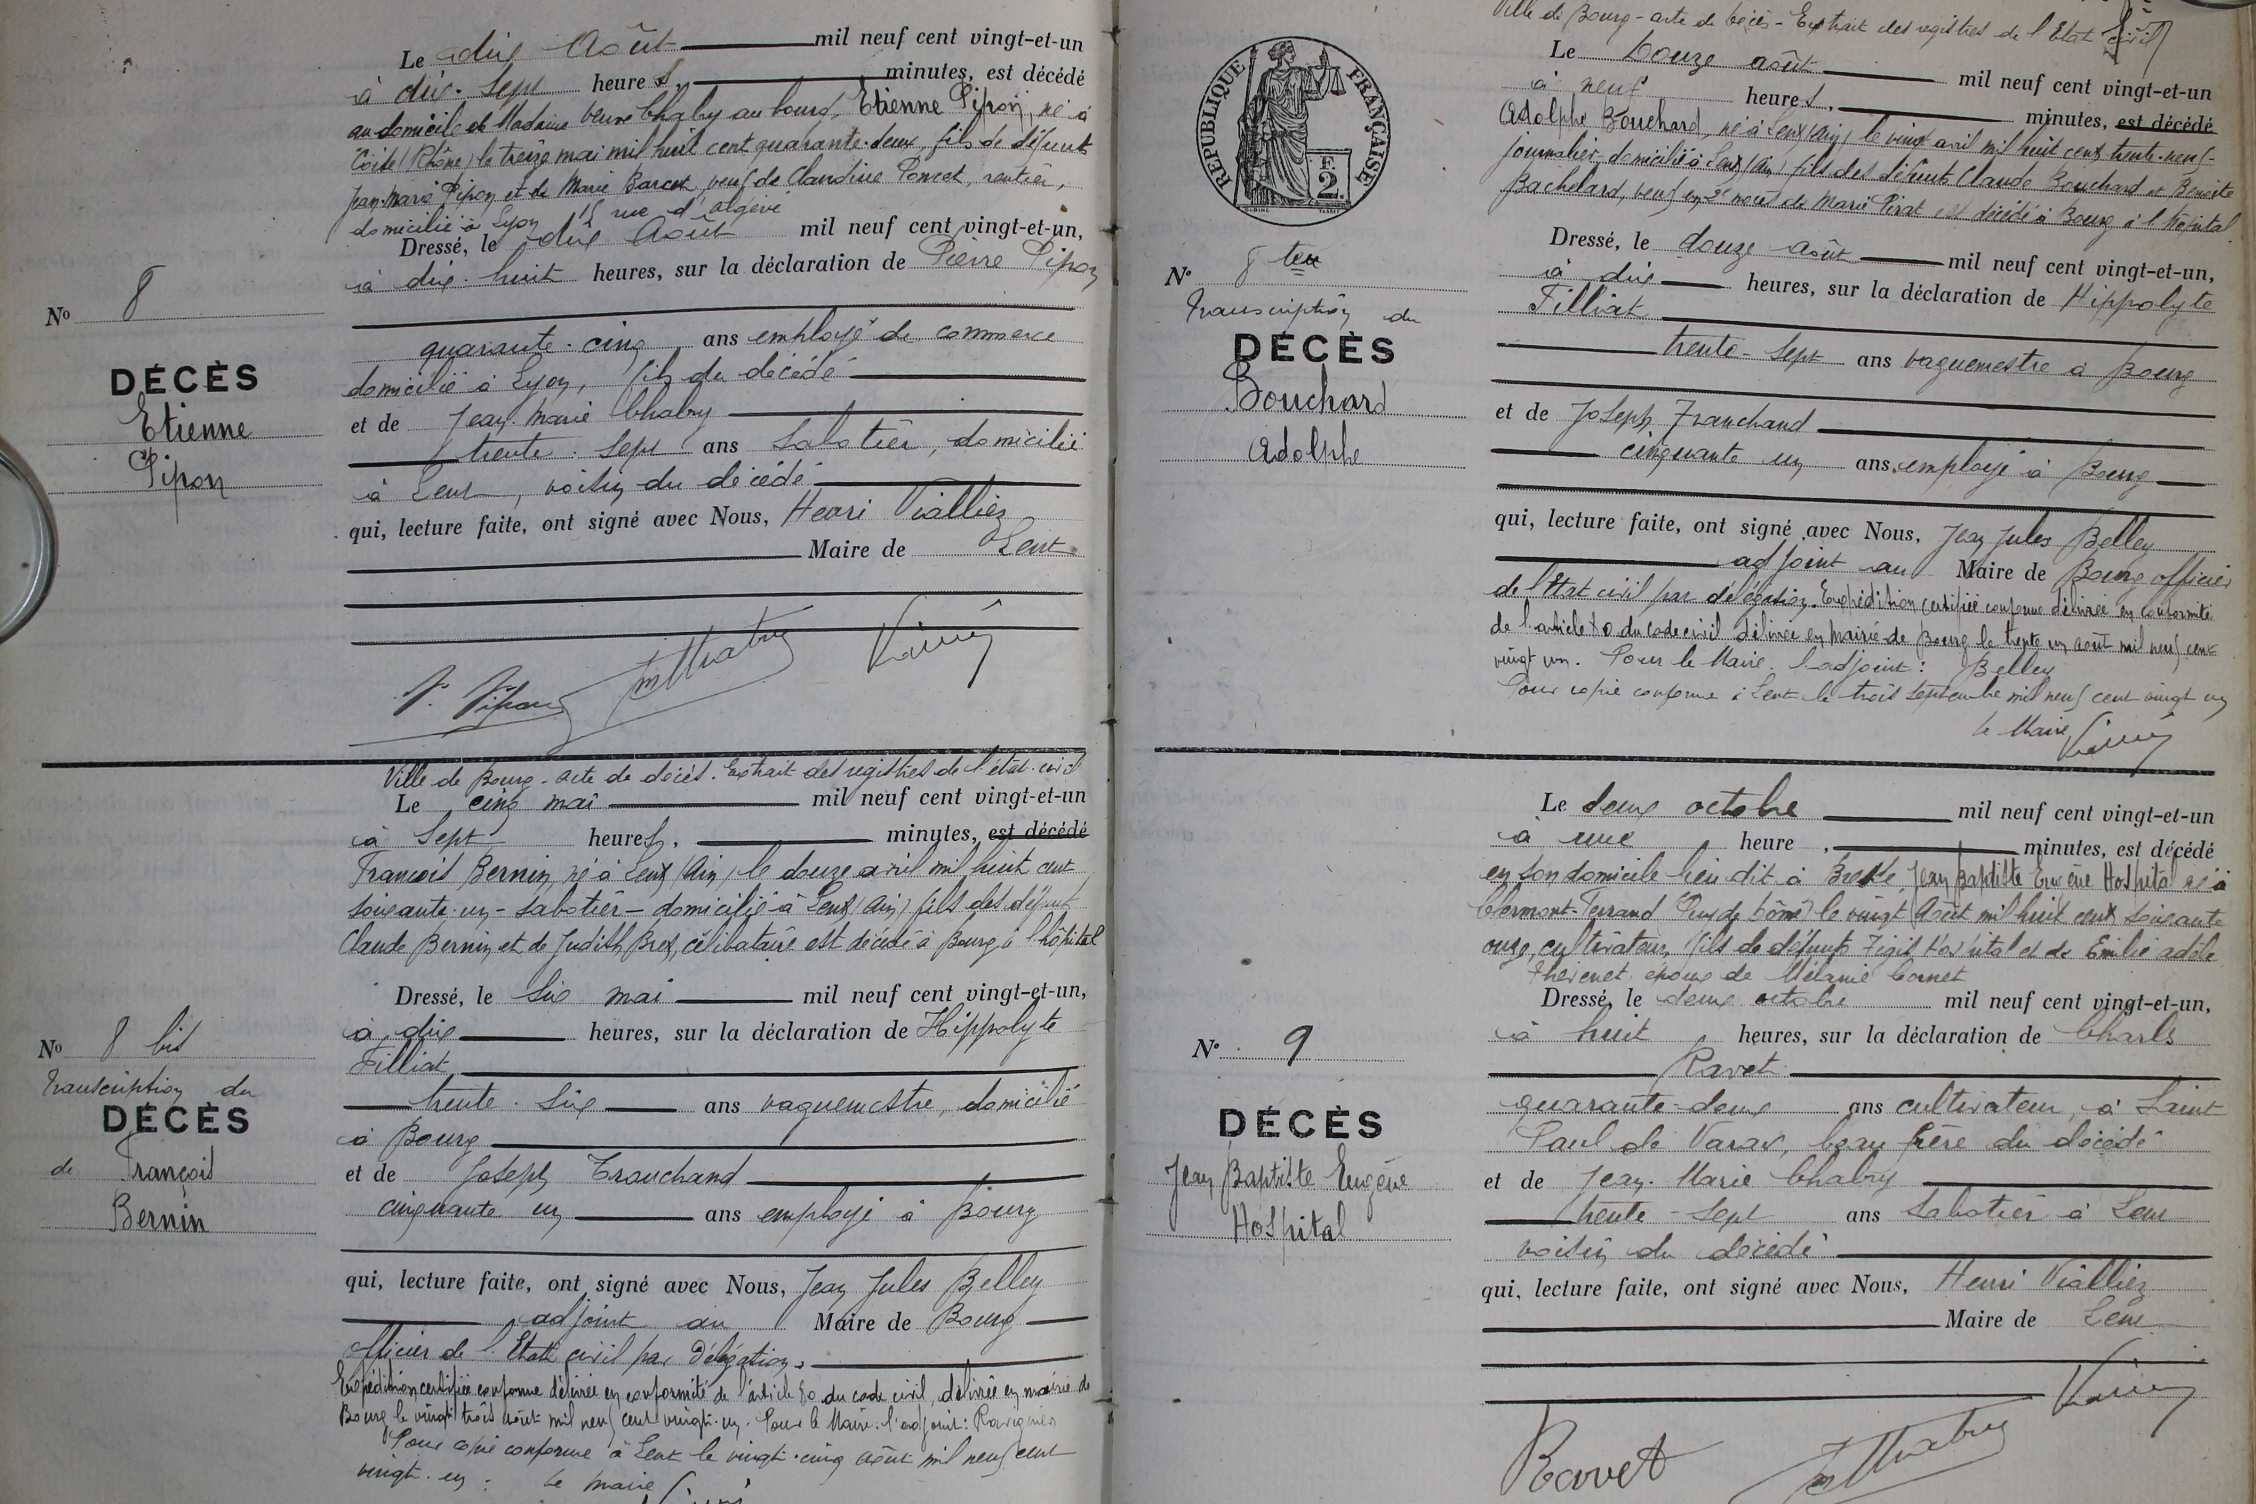 Le dix Août mil neuf cent vingt-et-un
à dix-sept heures, minutes, est décédé
au domicile de Madame veuve Chabry au bourg, Etienne Pipon, né à
(Rhône) le treize mai mil huit cent quarante-deux, fils de défunt
Jean-Marie Pipon et de Marie Barcet, veuf de Claudine Poncet, rentier,
domicilié à Lyon 15 rue d'algérie
Dressé, le dix Août mil neuf cent vingt-et-un,
à dix-huit heures, sur la déclaration de Pierre Pipon
quarante-cinq ans employé de commerce
domicilié à Lyon, fils du décédé
et de Jean-Marie Chabry
trente-sept ans sabotier, domicilié
à Lent, voisin du décédé
qui, lecture faite, ont signé avec Nous, Henri Viallier
Maire de Lent
P. Pipon
No 8
DÉCÈS
Etienne
Pipon
Ville de Bourg - acte de décès. Extrait des registres de l'état-civil
Le cinq mai mil neuf cent vingt-et-un
à sept heures, minutes, est décédé
François Bernin, né à Lent (Ain) le douze avril mil huit cent
soixante-un - sabotier - domicilié à Lent (Ain) fils des défunts
Claude Bernin et de Judith Bret, célibataire est décédé à Bourg à l'hôpital
Dressé, le six mai mil neuf cent vingt-et-un,
à dix heures, sur la déclaration de Hippolyte
Filliat
trente-six ans vaguemestre, domicilié
à Bourg
et de Joseph Trouchand
cinquante un ans employé à Bourg
qui, lecture faite, ont signé avec Nous, Jean Jules Belley
adjoint au Maire de Bourg
officier de l'Etat civil par délégation.
Expédition certifiée conforme délivrée en conformité de l'article 80 du code civil, délivrée en mairie de
Bourg le vingt trois août mil neuf cent vingt-un. Pour le Maire: l'adjoint:
Pour copie conforme à Lent le vingt-cinq août mil neuf cent
vingt-un: Le maire
No 8 bis
Transcription du
DÉCÈS
de François
Bernin
Ville de Bourg - acte de décès - Extrait des registres de l'Etat civil
Le douze août mil neuf cent vingt-et-un
à neuf heures, minutes, est décédé
Adolphe Bouchard, né à Lent (Ain) le vingt avril mil huit cent trente-neuf -
journalier, domicilié à Lent (Ain) fils des défunts Claude Bouchard et Benoite
Bachelard, veuf en 2e noces de Marie Pirat est décédé à Bourg à l'hôpital
Dressé, le douze août mil neuf cent vingt-et-un,
à dix heures, sur la déclaration de Hippolyte
Filliat
trente-sept ans vaguemestre à Bourg
et de Joseph Trauchand
cinquante un ans employé à Bourg
qui, lecture faite, ont signé avec Nous, Jean Jules Belley
adjoint au Maire de Bourg officier
de l'Etat civil par délégation. Expédition certifiée conforme délivrée en conformité
de l'article 80 du code civil délivrée en mairie de Bourg le trente un août mil neuf cent
vingt un. Pour le Maire. L'adjoint: Belley
Pour copie conforme à Lent le trois septembre mil neuf cent vingt un
Le Maire
RÉPUBLIQUE FRANÇAISE
2F.
No 8 ter
Transcription du
DÉCÈS
Bouchard
Adolphe
Le deux octobre mil neuf cent vingt-et-un
à une heure, minutes, est décédé
en son domicile lieu dit à Jean Baptiste Eugène Hospital né à
Clermont-Ferrand (Puy de Dôme) le vingt Août mil huit cent soixante
onze, cultivateur, fils de défunts Hospital et de Emilie adèle
Thevenet, époux de Mélanie Cornet
Dressé, le deux octobre mil neuf cent vingt-et-un,
à huit heures, sur la déclaration de Charles
Ravet
quarante-deux ans cultivateur, à Saint
Paul de Varax, beau frère du décédé
et de Jean-Marie Chabry
trente-sept ans sabotier à Lent
voisin du décédé
qui, lecture faite, ont signé avec Nous, Henri Viallier
Maire de Lent
Ravet
No 9
DÉCÈS
Jean Baptiste Eugène
Hospital